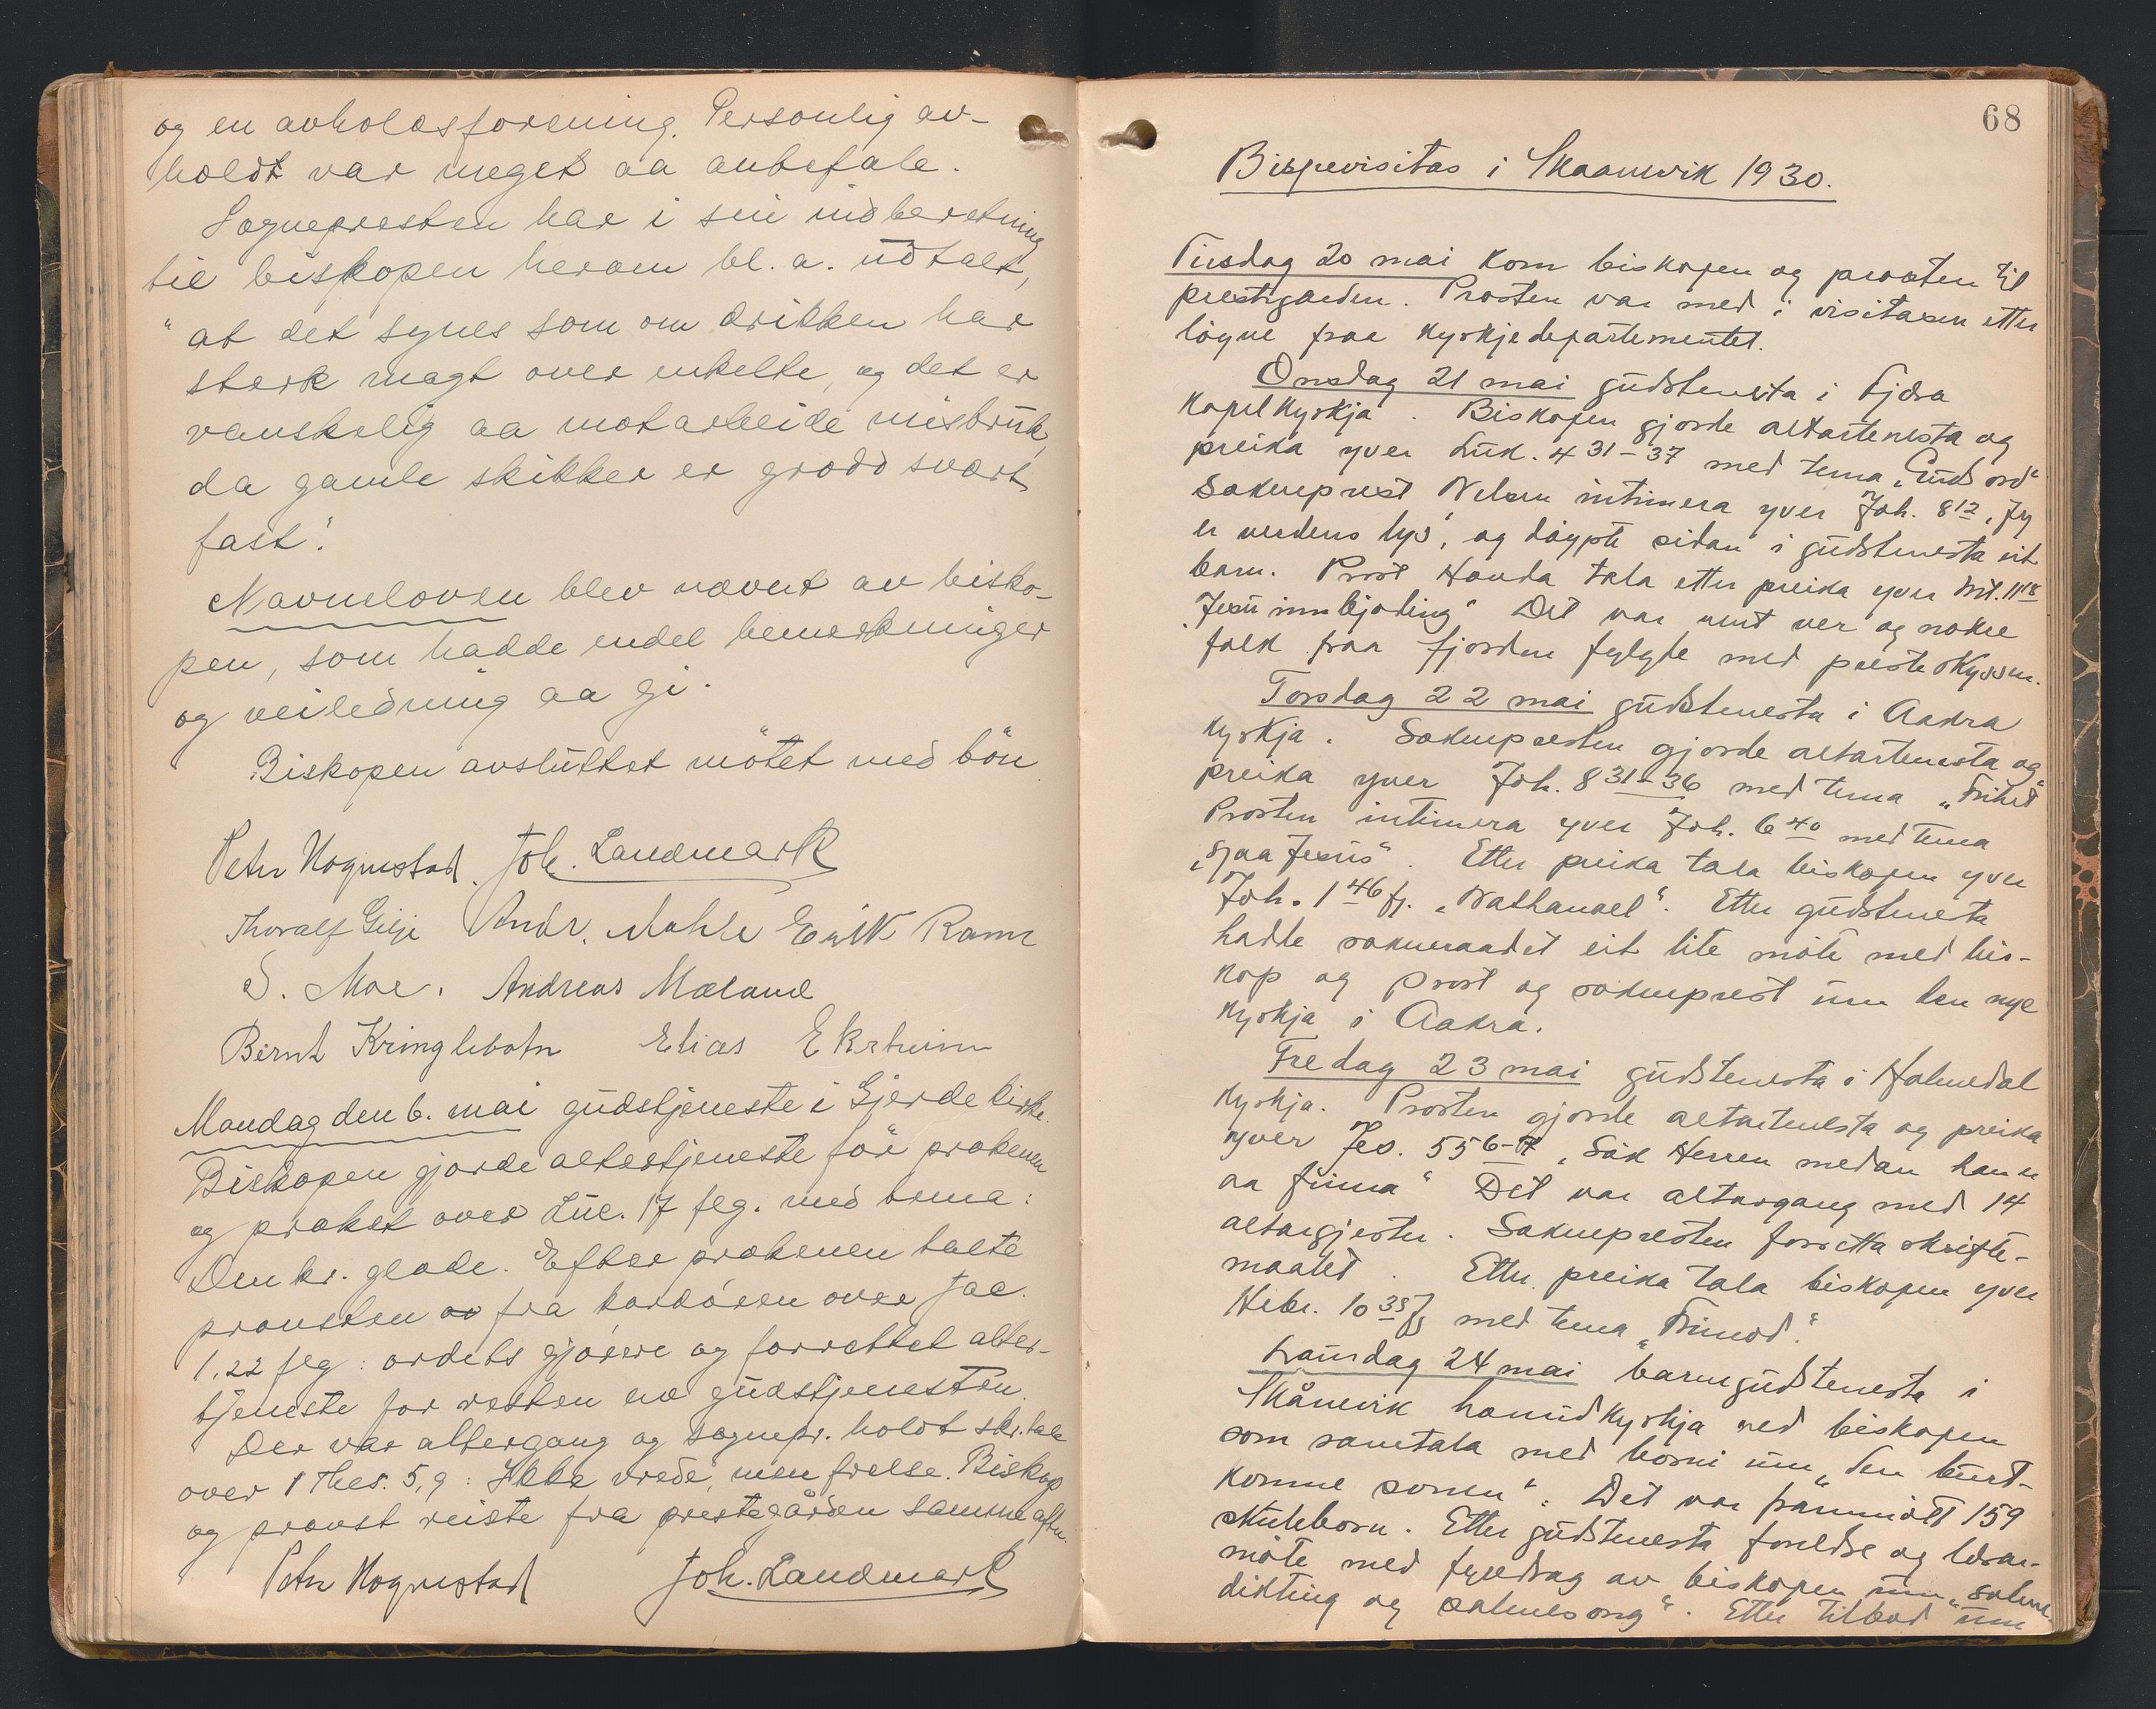 og en avholdsforening. Personlig av-
holdt var meget aa anbefale.
Sognepresten har i sin indberetning
til biskopen herom bl. a. udtalt,
"at det synes som om drikken har
sterk magt over enkelte, og det er
vanskelig aa motarbeide misbruk,
da gamle skikker er grodd svært
fast".
Navneloven blev nævnt av bisko-
pen, som hadde endel bemerkninger
og veiledning aa gi.
Biskopen avsluttet mötet med bön
Peter Hognestad. Joh. Landmark
Thoralf Gilje Andr. Mehle Erik Ramr
S. Moe. Andreas Mæland
Bernt Kringlebotn Elias Ekrheim
Mandag den 6. mai gudstjeneste i Gjerde kirke.
Biskopen gjorde altertjeneste för prækenen
og præket over Luc. 17 flg. med tema:
Den kr. glæde. Efter prækenen talte
prousten av fra kordören over Jac.
1.22 flg: ordets gjörere og forrettet alter-
tjeneste for resten av gudstjenesten.
Der var altergang og sognepr. holdt skr.tale
over 1 Thes. 5,9: Ikke vrede, men frelse. Biskop
og proust reiste fra prestegården samme aften.
Peter Hognestad Joh. Landmark
68
Bispevisitas i Skaanevik 1930.
Tirsdag 20 mai kom biskopen og prosten til
prestgarden. Prosten var med i visitasen etter
löyve fraa kyrkjedepartementet.
Onsdag 21 mai gudstenesta i Fjæra
kapelkyrkja. Biskopen gjorde altartenesta og
preika yver Luk. 4 31-37 med tema "Guds ord"
Sokneprest Nelsen intimera yver Joh. 8 12 "Eg
er verdens lys", og döypte sidan i gudstenesta eit
barn. Prost Hovda tala etter preika yver Mt. 11 18
"Jesu innbjoding" Det var vent ver og nokre
folk fraa fjorden fylgte med presteskyssen.
Torsdag 22 mai gudstenesta i Aakra
kyrkja. Soknepresten gjorde altartenesta og
preika yver Joh. 8 31-36 med tema "Frihet"
Prosten intimera yver Joh. 6 40 med tema
"sjaa Jesus". Etter preika tala biskopen yver
Joh. 1 46 fj. "Nathanael". Etter gudstenesta
hadde sokneraadet eit lite möte med bis-
kop og prost og sokneprest um den nye
kyrkja i Aakra.
Fredag 23 mai gudstenesta i Holmedal
kyrkja. Prosten gjorde altartenesta og preika
yver Jes. 55 6-7 "Sök Herren medan han er
aa finna" Det var altargang med 14
altargjester. Soknepresten forretta skrifte-
maalet. Etter preika tala biskopen yver
Hebr. 10 35 fj med tema "Frimod".
Laurdag 24 mai barnegudstenesta i
Skånevik hovudkyrkja ved biskopen
som samtala med borni um "den burt-
komne sonen". Det var frammött 159
skuleborn. Etter gudstenesta foreldre og lærar-
möte med fyredrag av biskopen um "salme-
dikting og salmesong". Etter tilbod um